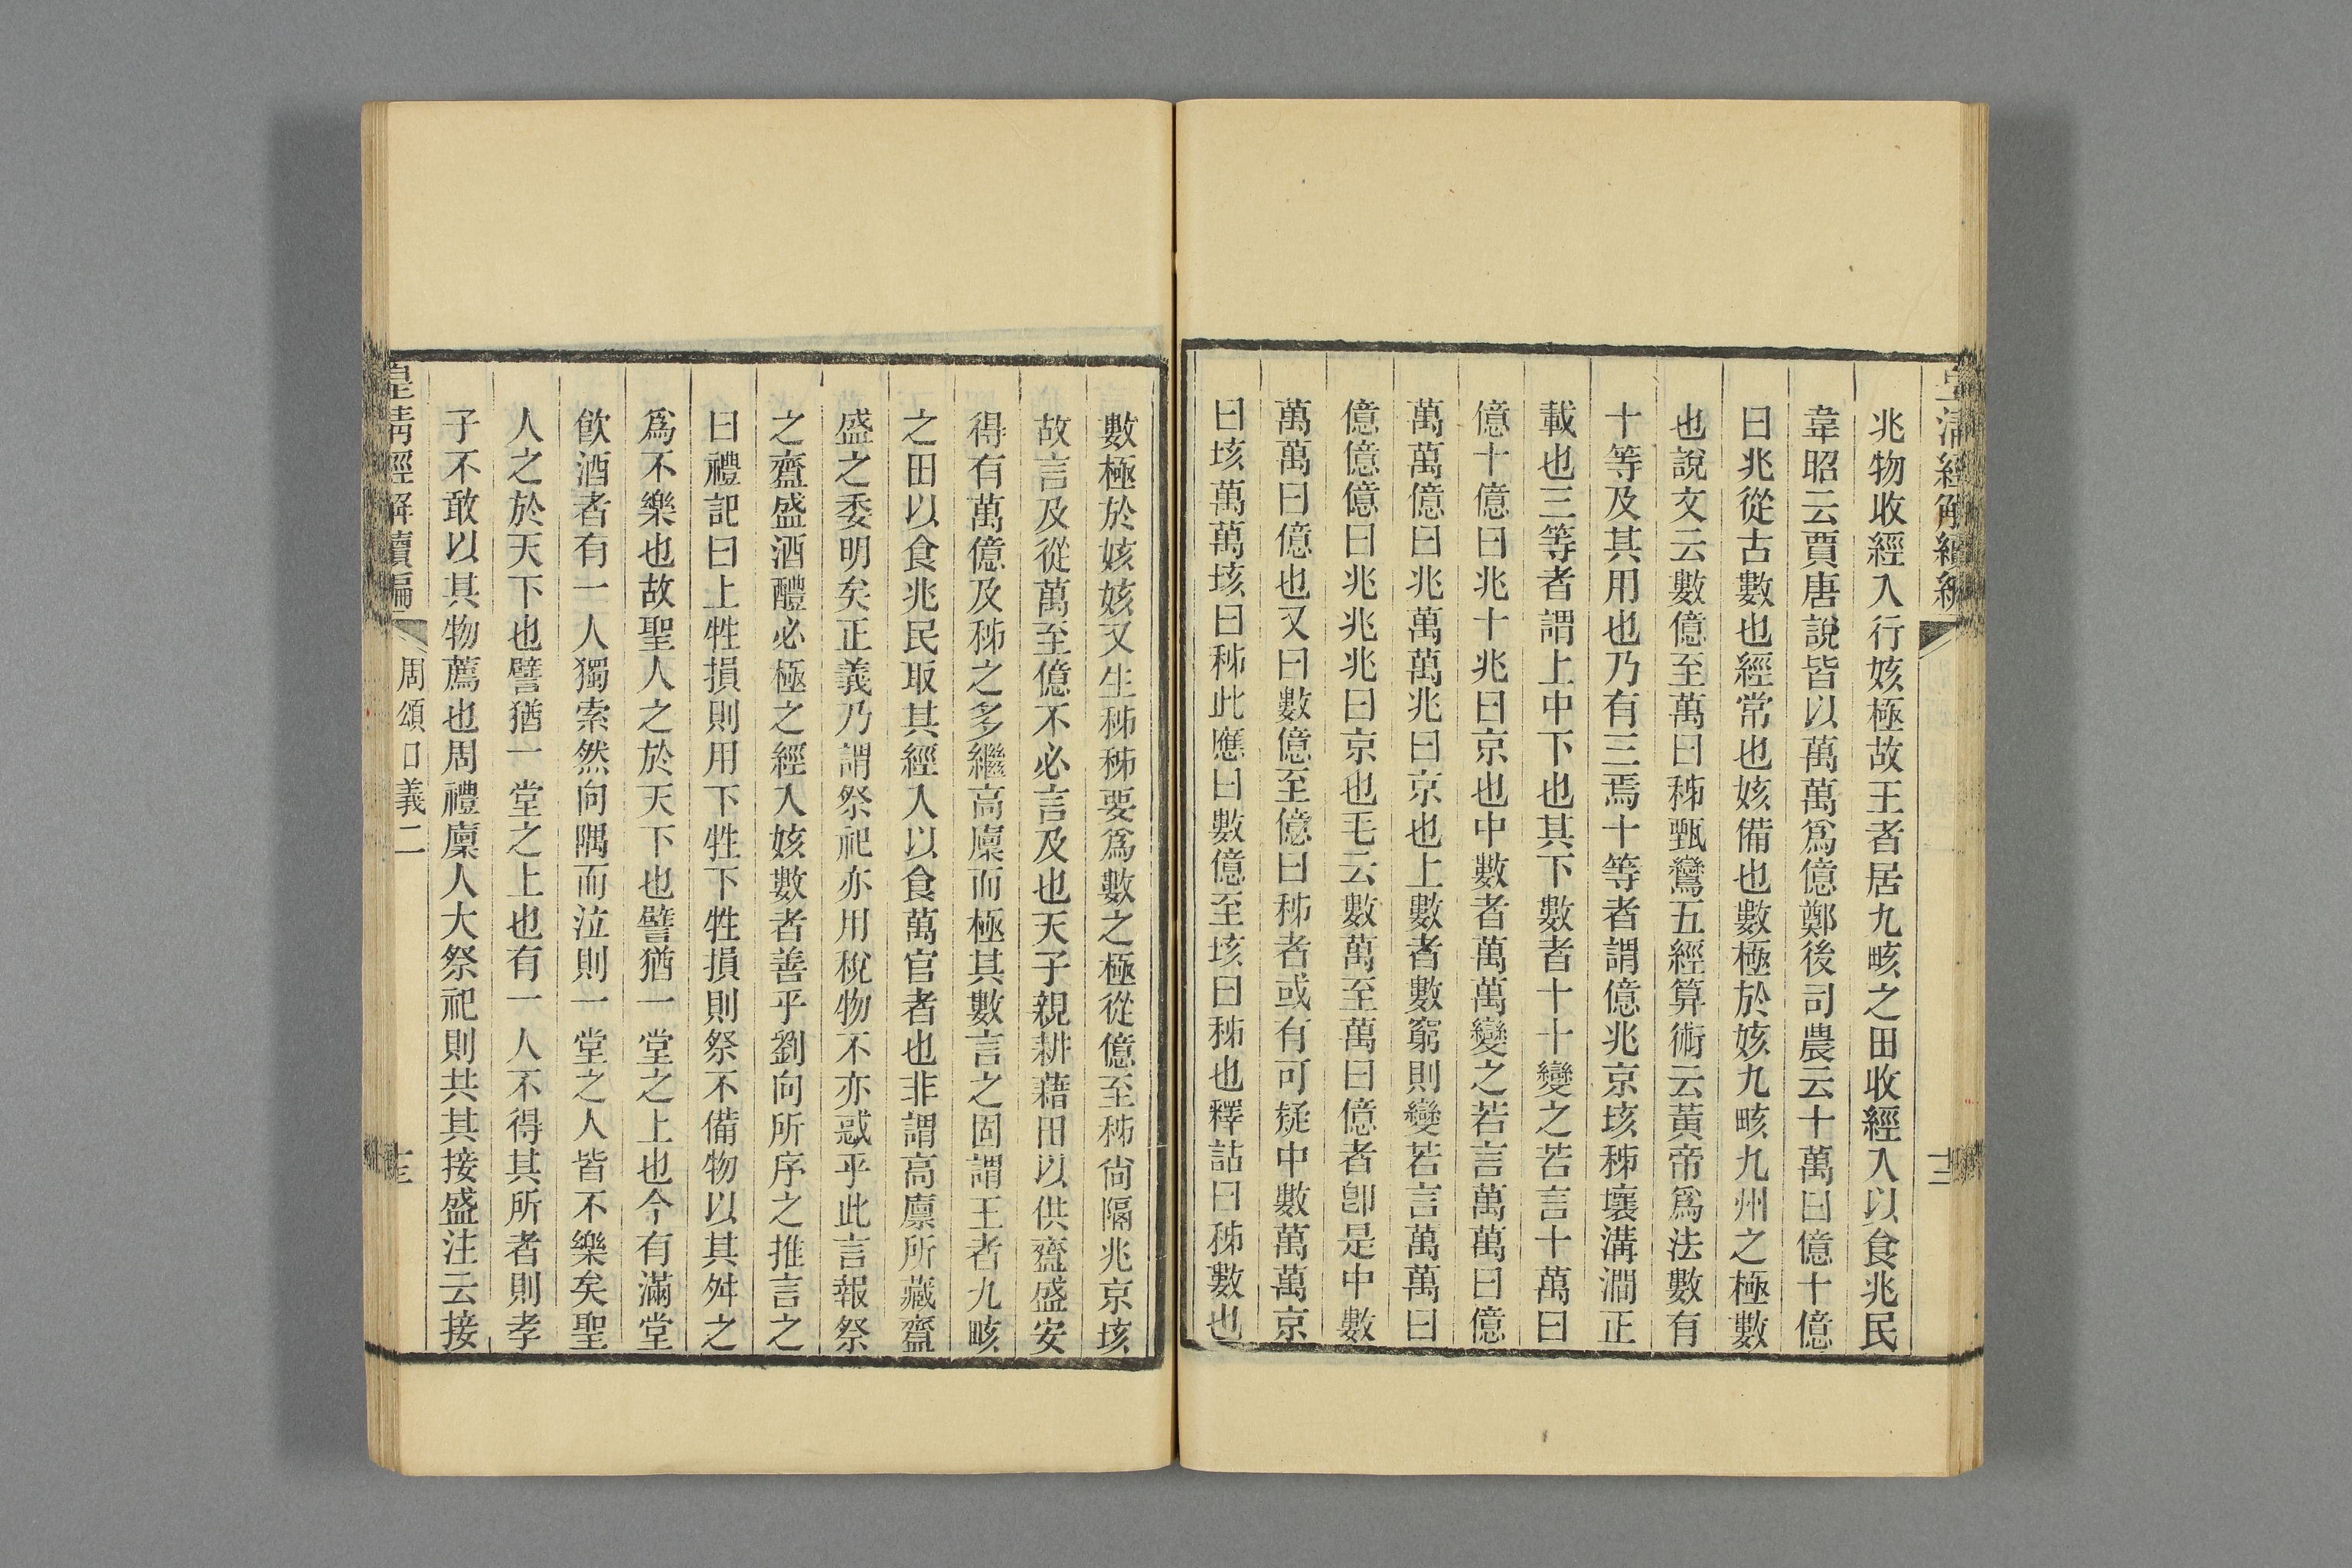 皇清經解續編
十二
兆物收經入行姟極故王者居九畡之田收經入以食兆民
韋昭云賈唐說皆以萬萬爲億鄭後司農云十萬曰億十億
曰兆從古數也經常也姟備也數極於姟九畡九州之極數
也說文云數億至萬曰秭甄鸞五經算術云黃帝爲法數有
十等及其用也乃有三焉十等者謂億兆京垓秭壤溝澗正
載也三等者謂上中下也其下數者十十變之若言十萬曰
億十億曰兆十兆曰京也中數者萬萬變之若言萬萬曰億
萬萬億曰兆萬萬兆曰京也上數者數窮則變若言萬萬曰
億億億曰兆兆兆曰京也毛云數萬至萬曰億者卽是中數
萬萬曰億也又曰數億至億曰秭者或有可疑中數萬萬京
曰垓萬萬垓曰秭此應曰數億至垓曰秭也釋詁曰秭數也
數極於姟姟又生秭秭要爲數之極從億至秭尙隔兆京垓
故言及從萬至億不必言及也天子親耕藉田以供齍盛安
得有萬億及秭之多繼高廩而極其數言之固謂王者九畡
之田以食兆民取其經入以食萬官者也非謂高廪所藏齍
盛之委明矣正義乃謂祭祀亦用稅物不亦惑乎此言報祭
之齍盛酒醴必極之經入姟數者善乎劉向所序之推言之
曰禮記曰上牲損則用下牲下牲損則祭不備物以其舛之
爲不樂也故聖人之於天下也譬猶一堂之上也今有滿堂
飮酒者有一人獨索然向隅而泣則一堂之人皆不樂矣聖
人之於天下也譬猶一堂之上也有一人不得其所者則孝
子不敢以其物薦也周禮廩人大祭祀則共其接盛注云接
皇清經解續編
周頌口義二
十三